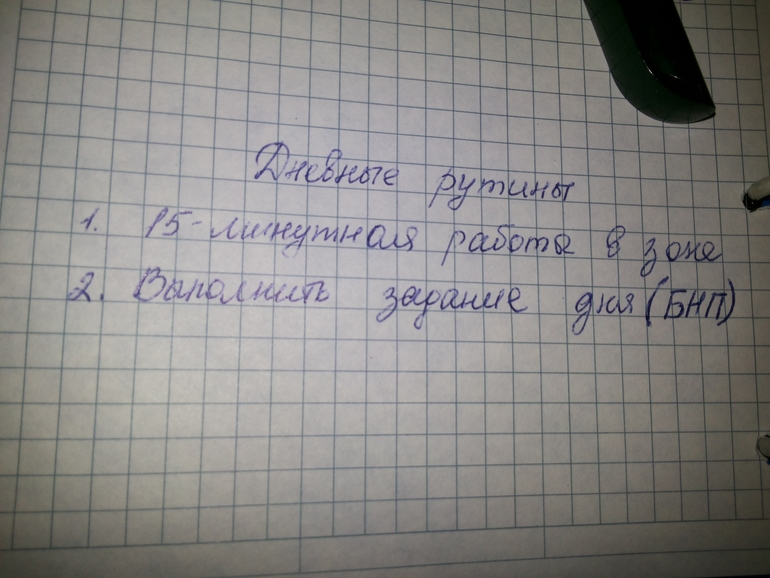 Дневные рутины
1. 15-минутная работа в зоне
2. Выполнить задание дня (БНП)